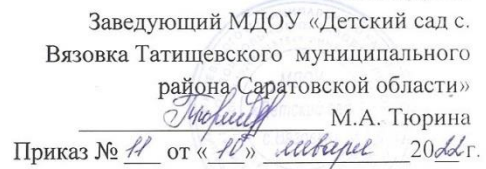 Заведующий МДОУ «Детский сад с.
Вязовка Татищевского муниципального
района Саратовской области»
М.А. Тюрина
Приказ № 11 от « 10 » января 2022 г.